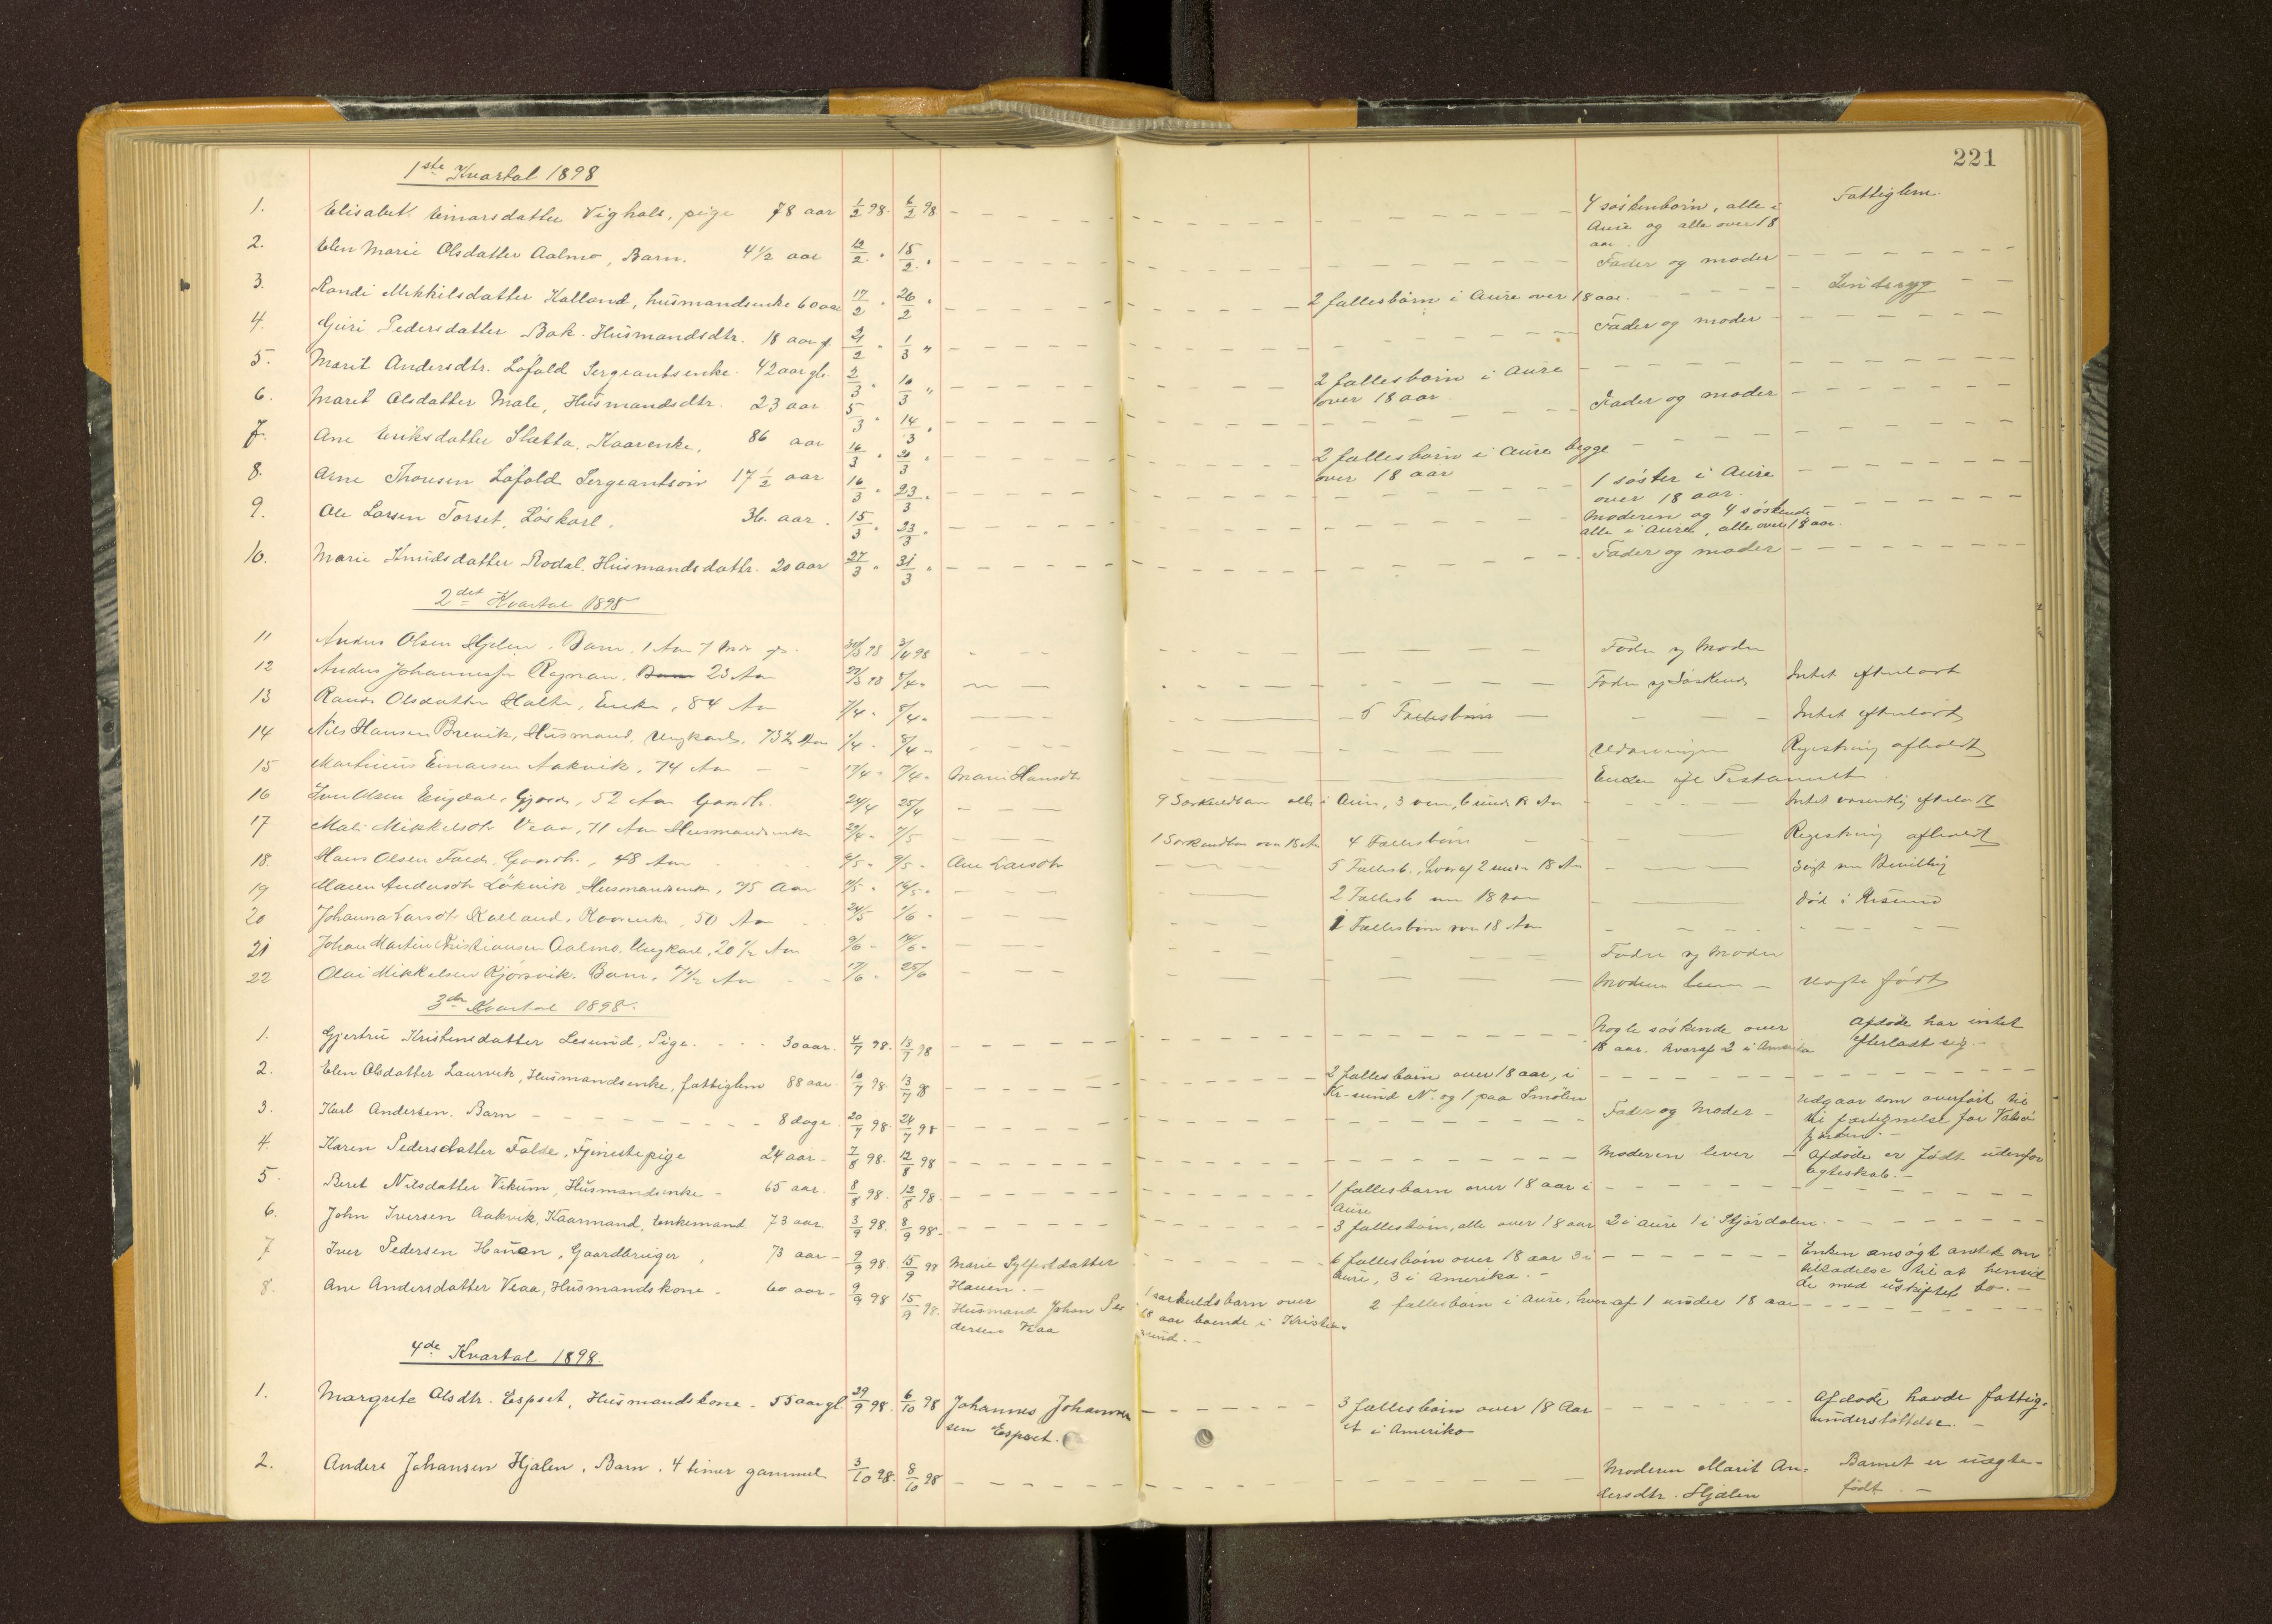 221
1ste Kvartal 1898
1. Elisabet Einarsdatter Vighals, pige 78 aar 1/2 98. 6/2 98 4 søskenbørn, alle i Fattiglem.
Aure og alle over 18
aar.
2. Elen Marie Olsdatter Aalmo, Barn. 4 1/2 aar 12/2 " 15/2 " Fader og moder
3. Randi Mikkilsdatter Kalland, husmandsenke 60 aar 17/2 " 26/2 " 2 fællesbørn i Aure over 18 aar.
4. Guri Pedersdatter Bak. Husmandsdtr. 18 aar g. 21/2 " 1/3 " Fader og moder
5. Marit Andersdtr. Lofald Sergeantsenke. 42 aar gl. 2/3 " 10/3 " 2 fællesbørn i Aure
over 18 aar.
6. Marit Olsdatter Male, Husmandsdtr. 23 aar 5/3 " 14/3 " Fader og moder
7. Ane Eriksdatter Sletta, Kaarenke, 86 aar 16/3 " 20/3 " 2 fællesbørn i Aure begge
over 18 aar
8. Arne Thoresen Lofald Sergeantsøn 17 1/2 aar 16/3 " 23/3 " 1 søster i Aure
over 18 aar.
9. Ole Larsen Torset, Løskarl. 36 aar. 15/3 " 23/3 " Moderen og 4 søskende
alle i Aure, alle over 18 aar.
10. Marie Knudsdatter Rodal, Husmandsdattr. 20 aar 27/3 " 31/3 " Fader og moder
2det Kvartal 1898
11 Anders Olsen Hjelen, Barn, 1 Aar 7 Mdr g. 30/3 98 3/4 98 Fader og Moder
12 Anders Johannesen 23 Aar 22/3 98 Fader og Søskende Intet efterladt
13 Randi Olsdatter Halte, Enke, 84 Aar 1/4 " 8/4 " 5 Fællesbørn Intet efterladt
14 Nils Hansen Brevik, Husmand, Ungkarl, 73 1/2 Aar 1/4 " 8/4 " Udarvinger Registrering afholdt
15 Martinus Einarsen Aakvik, 74 Aar 17/4 " Marie Hansdtr Enken Testament
16 Olsen Engdal, Gjøra, 52 Aar Gaardb. 24/4 25/4 9 Særkuldbarn alle i Aure, 3 over, 6 under 18 Aar Intet efterladt
17 Mali Mikkelsdtr Veaa, 71 Aar Husmandsenke 29/4 " 7/5 1 Særkuldbarn over 18 Aar 4 Fællesbørn Registrering afholdt
18. Hans Olsen Gaardb., 48 Aar 9/5 " Ane Larsdtr 5 Fællesb., hvoraf 2 under 18 Aar Søgt om Bevilling
19 Maren Andersdtr Løkvik, Husmandsenke, 75 Aar 14/5 " 2 Fællesb over 18 Aar Død i Krsund
20 Johanna Larsdtr Kalland, Kaarenke, 50 Aar 24/5 1/6 " 1 Fællesbarn over 18 Aar
21 Johan Martin Kristiansen Aalmo, Ungkarl, 20 1/2 Aar 9/6 " 14/6 " Fader og Moder
22 Olai Mikkelsen Kjørsvik, Barn, 7 1/2 Aar 17/6 " 25/6 Moderen lever Uægte født
3de Kvartal 1898.
1. Gjertru Kristensdatter Lesund, Pige. 30 aar. 4/7 98. 13/7 98 Nogle søskende over Afdøde har intet
18 aar. hvoraf 2 i Amerika efterladt sig.
2. Elen Olsdatter Laurvik, Husmandsenke, fattiglem 88 aar. 10/7 98 13/7 98 2 fællesbørn over 18 aar, 1 i
Kr-sund N. og 1 paa Smølen
3. Karl Andersen. Barn 8 dage. 20/7 98. 24/7 98 Fader og Moder Udgaar som overført til
fortegnelse for Valsø-
fjorden.
4. Karen Pedersdatter Falde, Tjenestepige 24 aar 7/8 98. 12/8 98 Moderen lever Afdøde er født udenfor
ægteskab.
5. Beret Nilsdatter Vikum, Husmandsenke 65 aar. 8/8 98. 12/8 98. 1 fællesbarn over 18 aar i
Aure
6. John Iversen Aakvik, Kaarmand, Enkemand 73 aar. 3/9 98. 8/9 98. 3 fællesbørn, alle over 18 aar 2 i Aure 1 i Stjørdalen.
7 Iver Pedersen Hauen, Gaardbruger, 73 aar 9/9 98. 15/9 98 Marie Sylfestdatter 6 fællesbørn over 18 aar 3 i Enken ansøgt amtet om
Hauen. Aure, 3 i Amerika. tilladelse til at hensid
de med uskiftet bo.
8. Ane Andersdatter Veaa, Husmandskone 60 aar 9/9 98 15/9 98. Husmand Johan Pe 1 særkuldsbarn over 2 fællesbørn i Aure, hvoraf 1 under 18 aar
dersen Veaa 18 aar boende i Kristian
sund.
4de Kvartal 1898.
1. Margrete Olsdtr. Espset, Husmandskone 55 aar gl. 29/9 98. 6/10 98 Johannes Johannes 3 fællesbørn over 18 Aar Afdøde havde fattig-
sen Espset. et i Amerika understøttelse.
2. Anders Johansen Hjelen, Barn, 4 timer gammel 3/10 98. 8/10 98 Moderen Marit An- Barnet er uægte-
dersdtr. Hjælen født.